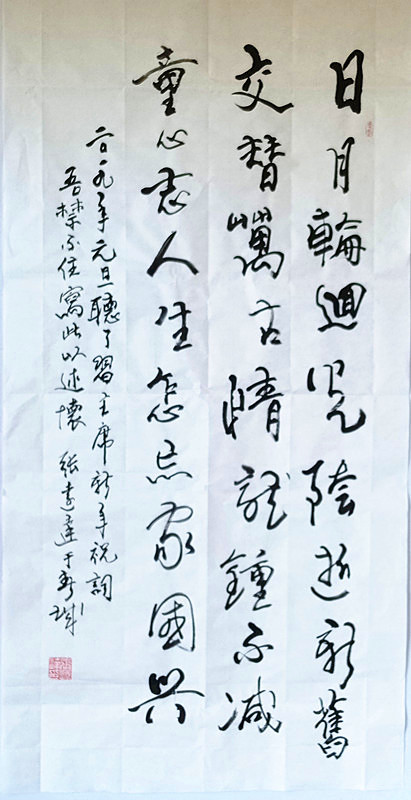 日月輪迴光陰逝新舊
交替古情龍鍾不減
童心志人生怎忘家國興
二〇一九年元旦聽了習主席新年祝詞
吾禁不住寫此以述懷 張達于